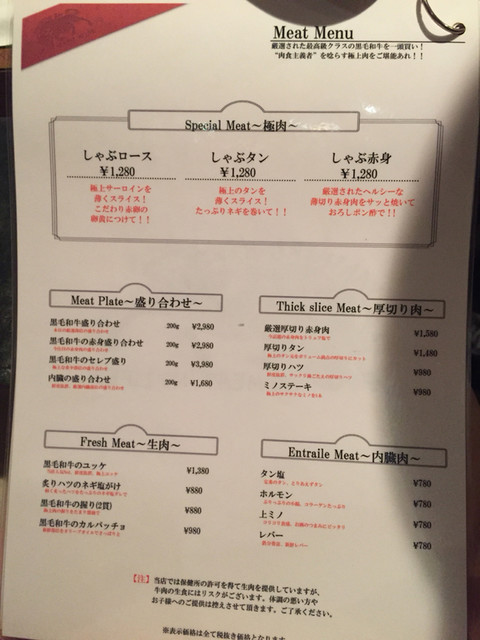 Meat Menu
厳選された最高級クラスの黒毛和牛を一頭買い！
“肉食主義者”を唸らす極上肉をご堪能あれ！！
Special Meat～極肉～
しゃぶロース
¥1,280
極上サーロインを
薄くスライス！
こだわり赤卵の
卵黄につけて！！
しゃぶタン
¥1,280
極上のタンを
薄くスライス！
たっぷりネギを巻いて！！
しゃぶ赤身
¥1,280
厳選されたヘルシーな
薄切り赤身肉をサッと焼いて
おろしポン酢で！！
Meat Plate～盛り合わせ～
黒毛和牛盛り合わせ 200g ¥2,980
黒毛和牛の赤身盛り合わせ 200g ¥2,980
黒毛和牛のセレブ盛り 200g ¥3,980
内臓の盛り合わせ 200g ¥1,680
Thick slice Meat～厚切り肉～
厳選厚切り赤身肉 ¥1,380
厚切りタン ¥1,480
厚切りハツ ¥980
ミノステーキ ¥980
Fresh Meat～生肉～
黒毛和牛のユッケ ¥1,380
炙りハツのネギ塩がけ ¥880
黒毛和牛の握り(2貫) ¥880
黒毛和牛のカルパッチョ ¥980
Entraile Meat～内臓肉～
タン塩 ¥780
ホルモン ¥780
上ミノ ¥780
レバー ¥780
【注】当店では保健所の許可を得て生肉を提供していますが、
牛肉の生食にはリスクがございます。体調の悪い方や
お子様へのご提供は控えさせて頂きます。ご了承ください。
※表示価格は全て税抜き価格となります